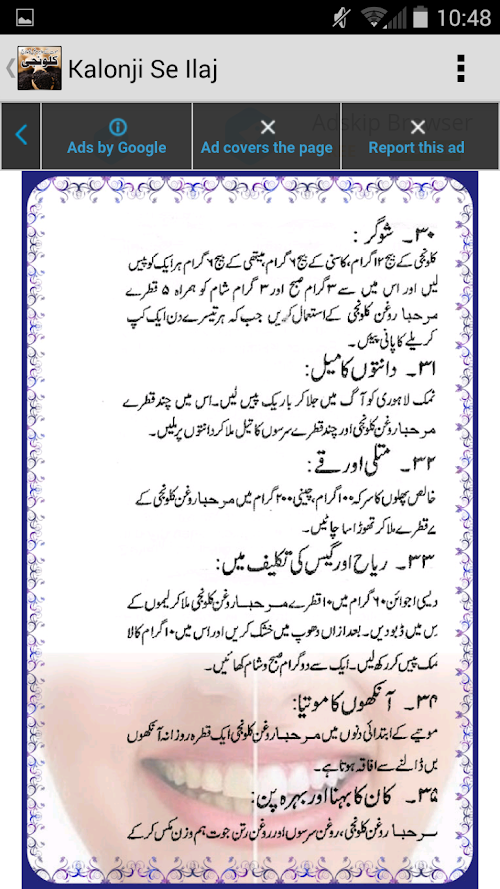 10:48
Kalonji Se Ilaj
Ads by Google
Ad covers the page
Report this ad
۳۰۔ شوگر :
کلونجی کے بیج ۱۲ گرام، کاسنی کے بیج ۶ گرام، میتھی کے بیج ۶ گرام ہر ایک کو پیس
لیں اور اس میں سے ۳ گرام صبح اور ۳ گرام شام کو ہمراہ ۵ قطرے
مرحبا روغن کلونجی کے استعمال کریں جب کہ ہر تیسرے دن ایک کپ
کریلے کا پانی پیئں۔
۳۱۔ دانتوں کا میل:
نمک لاہوری کو آگ میں جلا کر باریک پیس لیں۔ اس میں چند قطرے
مرحبا روغن کلونجی اور چند قطرے سرسوں کا تیل ملا کر دانتوں پر ملیں۔
۳۲۔ متلی اور قے :
خالص پھلوں کا سرکہ ۱۰۰ گرام، چینی ۲۰۰ گرام میں مرحبا روغن کلونجی کے
۷ قطرے ملا کر تھوڑا سا چاٹیں۔
۳۳۔ ریاح اور گیس کی تکلیف میں:
دیسی اجوائن ۶۰ گرام میں ۱۰ قطرے مرحبا روغن کلونجی ملا کر لیموں کے
رس میں ڈبو دیں۔ بعد ازاں دھوپ میں خشک کریں اور اس میں ۱۰ گرام کالا
نمک پیس کر رکھ لیں۔ ایک سے دو گرام صبح و شام کھائیں۔
۳۴۔ آنکھوں کا موتیا:
موتیے کے ابتدائی دنوں میں مرحبا روغن کلونجی ایک قطرہ روزانہ آنکھوں
میں ڈالنے سے افاقہ ہوتا ہے۔
۳۵۔ کان کا بہنا اور بہرہ پن:
مرحبا روغن کلونجی، روغن سرسوں اور روغن رتن جوت ہم وزن مکس کر کے